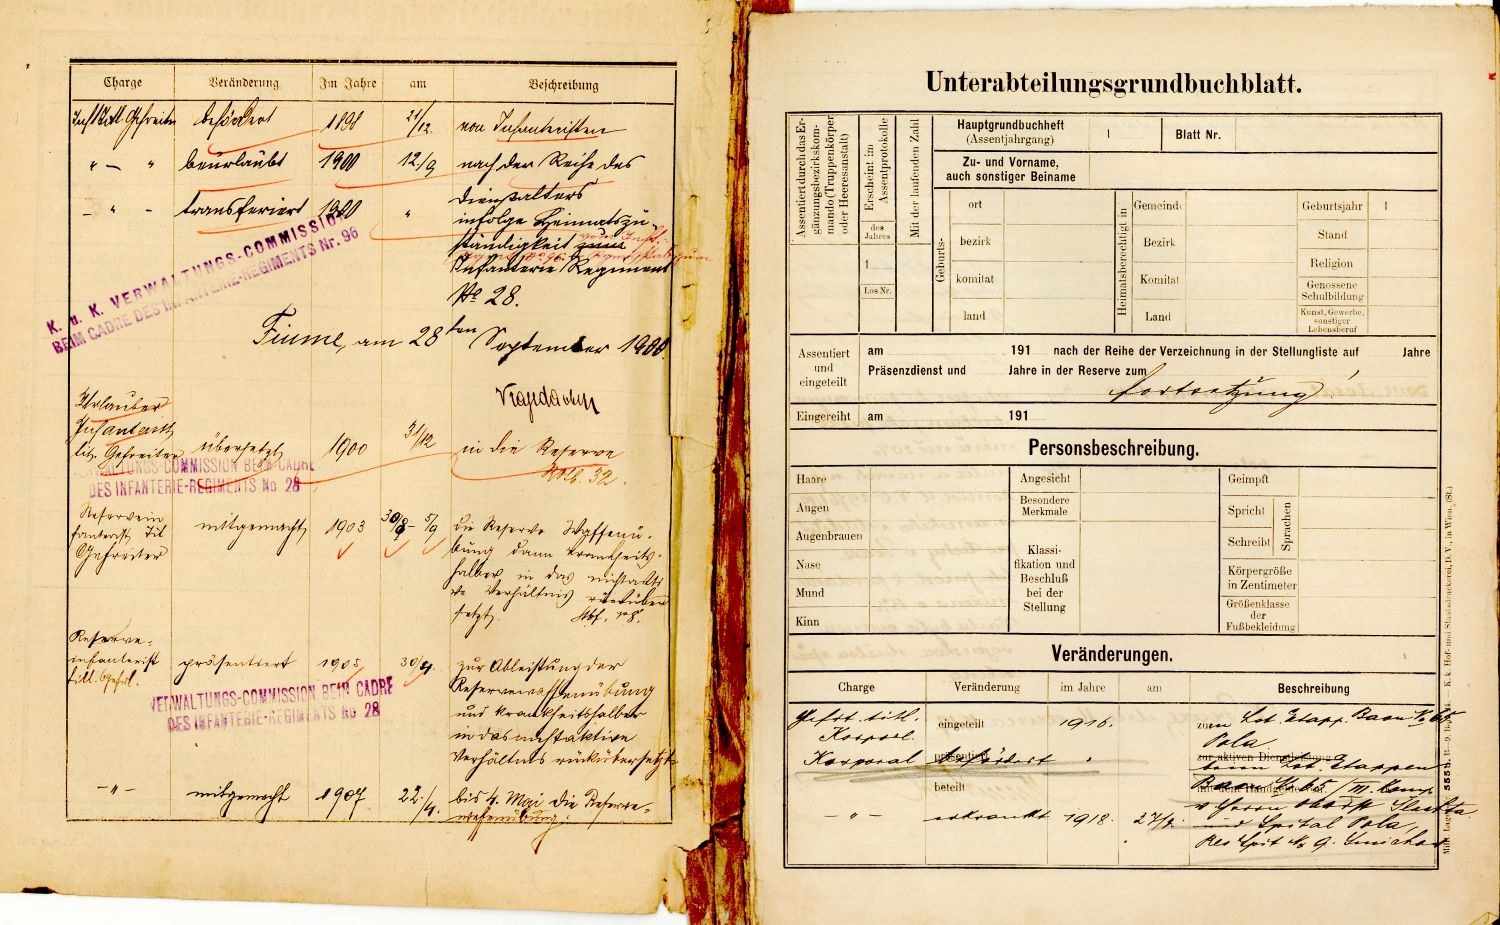 Charge Veränderung Im Jahre am Beschreibung
Gefreiter befördert 1898 21/12 von Infanteristen
" — " beurlaubt 1900 12./9 nach der Reihe des
Dienstalters
— " — transferiert 1900 " infolge Heimatszu-
ständigkeit zum
Infanterie Regiment
No 28.
K. u. K. VERWALTUNGS-COMMISSION
BEIM CADRE DES INFANTERIE-REGIMENTS Nr. 96
Fiume, am 28ten September 1900
Urlauber
Infanterist
tit. Gefreiter übersetzt 1900 31/12 in die Reserve
VERWALTUNGS-COMMISSION BEIM CADRE
DES INFANTERIE-REGIMENTS No 28
Reservein
fanterist Tit
Gefreiter mitgemacht 1903 30/8 - 5/9 die Reserve Waffenü-
bung dann krankheits-
halber in das nichtakti
ve Verhältnis rückÜber
setzt.
Reserve-
infanterist
titl. Gefrt. präsentiert 1905 30/4. zur Ableistung der
Reservewaffenübung
und krankheitshalber
in das nichtaktive
Verhältnis rückübersetzt
VERWALTUNGS-COMMISSION BEIM CADRE
DES INFANTERIE-REGIMENTS No 28
— " — mitgemacht 1907 22./4. bis 4. Mai die Reserve-
waffenübung.
Unterabteilungsgrundbuchblatt.
Assentiert durch das Er-
gänzungsbezirkskom-
mando (Truppenkörper
oder Heeresanstalt)
Erscheint im
Assentprotokolle
des
Jahres
1
Los Nr.
Mit der laufenden Zahl
Hauptgrundbuchheft
(Assentjahrgang) 1 Blatt Nr.
Zu- und Vorname,
auch sonstiger Beiname
Geburts-
ort
bezirk
komitat
land
Heimatsberechtigt in
Gemeinde
Bezirk
Komitat
Land
Geburtsjahr 1
Stand
Religion
Genossene
Schulbildung
Kunst, Gewerbe,
sonstiger
Lebensberuf
Assentiert
und
eingeteilt
am 191 nach der Reihe der Verzeichnung in der Stellungliste auf Jahre
Präsenzdienst und Jahre in der Reserve zum
Fortsetzung!
Eingereiht am 191
Personsbeschreibung.
Haare
Augen
Augenbrauen
Nase
Mund
Kinn
Angesicht
Besondere
Merkmale
Klassi-
fikation und
Beschluß
bei der
Stellung
Geimpft
Spricht
Schreibt
Sprachen
Körpergröße
in Zentimeter
Größenklasse
der
Fußbekleidung
Veränderungen.
Charge Veränderung im Jahre am Beschreibung
Gefrt. titl.
Korporl. eingeteilt 1916. zum Lst. Etapp. Baon No 65
Pola
Korporal präsentiert befördert " zur aktiven Dienstleistung
beim Lst. Etappen
beteilt mit dem Handgelde
Baon No 65/III. Komp.
— " — erkrankt 1918. 27/4.
und Spital Pola,
Res Spit No 9.
K. k. Hof- und Staatsdruckerei, D. V., in Wien. (St.)